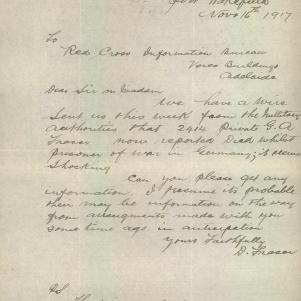 Port Wakefield
Nov. 16th 1917
To
Red Cross Information Bureau
Verco Buildings
Adelaide
Dear Sir or Madam
We have a Wire
Sent us this week from the Military
authorities that 2414 Private G. A
Fraser now reported Dead whilst
prisoner of war in Germany, it seems
Shocking
Can you please get any
information, I presume its probable
their may be information on the way
from arrangments made with you
some time ago in anticipation
Yours Faithfully
D. Fraser